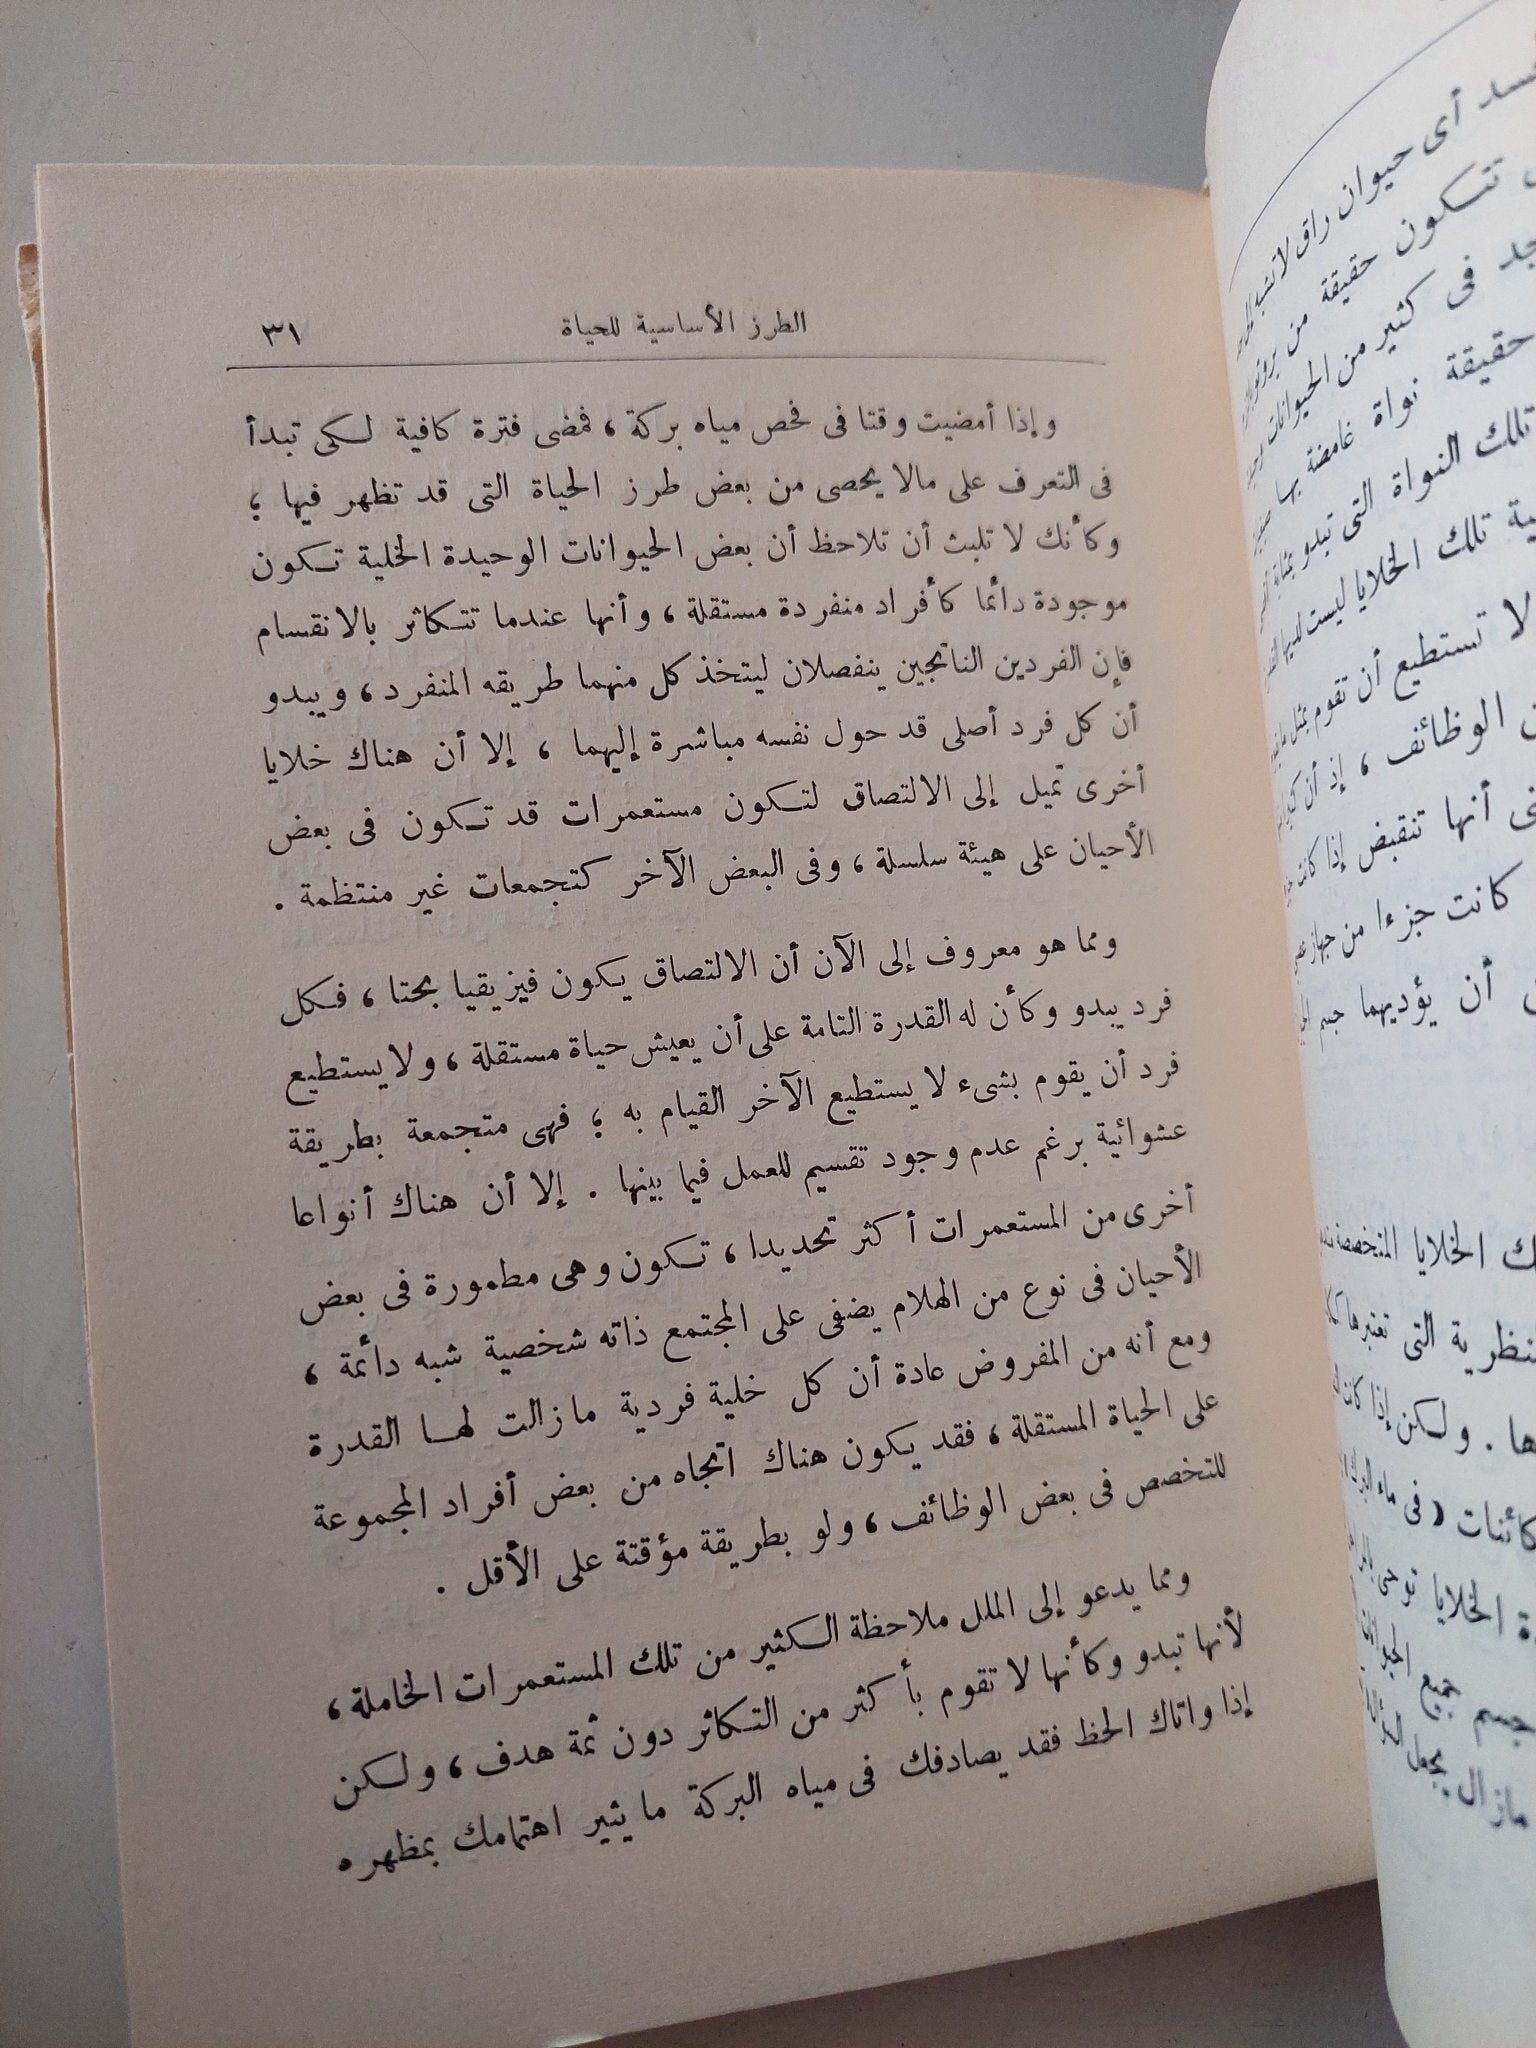 الطرز الأساسية للحياة ٣١
وإذا أمضيت وقتا فى فحص مياه بركة ، فمضى فترة كافية لكى تبدأ
فى التعرف على مالا يحصى من بعض طرز الحياة التى قد تظهر فيها ؛
وكأنك لا تلبث أن تلاحظ أن بعض الحيوانات الوحيدة الخلية تكون
موجودة دائما كأفراد منفردة مستقلة ، وأنها عندما تتكاثر بالانقسام
فإن الفردين الناتجين ينفصلان ليتخذ كل منهما طريقه المنفرد ، ويبدو
أن كل فرد أصلى قد حول نفسه مباشرة إليهما ، إلا أن هناك خلايا
أخرى تميل إلى الالتصاق لتكون مستعمرات قد تكون فى بعض
الأحيان على هيئة سلسلة ، وفى البعض الآخر كتجمعات غير منتظمة .
ومما هو معروف إلى الآن أن الالتصاق يكون فيزيقيا بحتا ، فكل
فرد يبدو وكأن له القدرة التامة على أن يعيش حياة مستقلة ، ولا يستطيع
فرد أن يقوم بشىء لا يستطيع الآخر القيام به ؛ فهى متجمعة بطريقة
عشوائية برغم عدم وجود تقسيم للعمل فيما بينها . إلا أن هناك أنواعا
أخرى من المستعمرات أكثر تحديدا ، تكون وهى مطمورة فى بعض
الأحيان فى نوع من الهلام يضفى على المجتمع ذاته شخصية شبه دائمة ،
ومع أنه من المفروض عادة أن كل خلية فردية مازالت لها القدرة
على الحياة المستقلة ، فقد يكون هناك اتجاه من بعض أفراد المجموعة
للتخصص فى بعض الوظائف ، ولو بطريقة مؤقتة على الأقل .
ومما يدعو إلى الملل ملاحظة الكثير من تلك المستعمرات الخاملة ،
لأنها تبدو وكأنها لا تقوم بأكثر من التكاثر دون ثمة هدف ، ولكن
إذا واتاك الحظ فقد يصادفك فى مياه البركة ما يثير اهتمامك بمظهره
أى حيوان راق لا تشبه
تتكون حقيقة من
فى كثير من الحيوانات
حقيقة نواة غامضة بها
تلك النواة التى تبدو بمثابة
تلك الخلايا ليست لديها
لا تستطيع أن تقوم بمثل
الوظائف ، إذ أن
أنها تنقبض إذا كانت
كانت جزءا من جهاز
أن يؤديهما جسم
الخلايا المتخصصة
التى تعتبرها
ولكن إذا كانت
( فى ماء
الخلايا توحى
جسم جميع
مازال يجعل